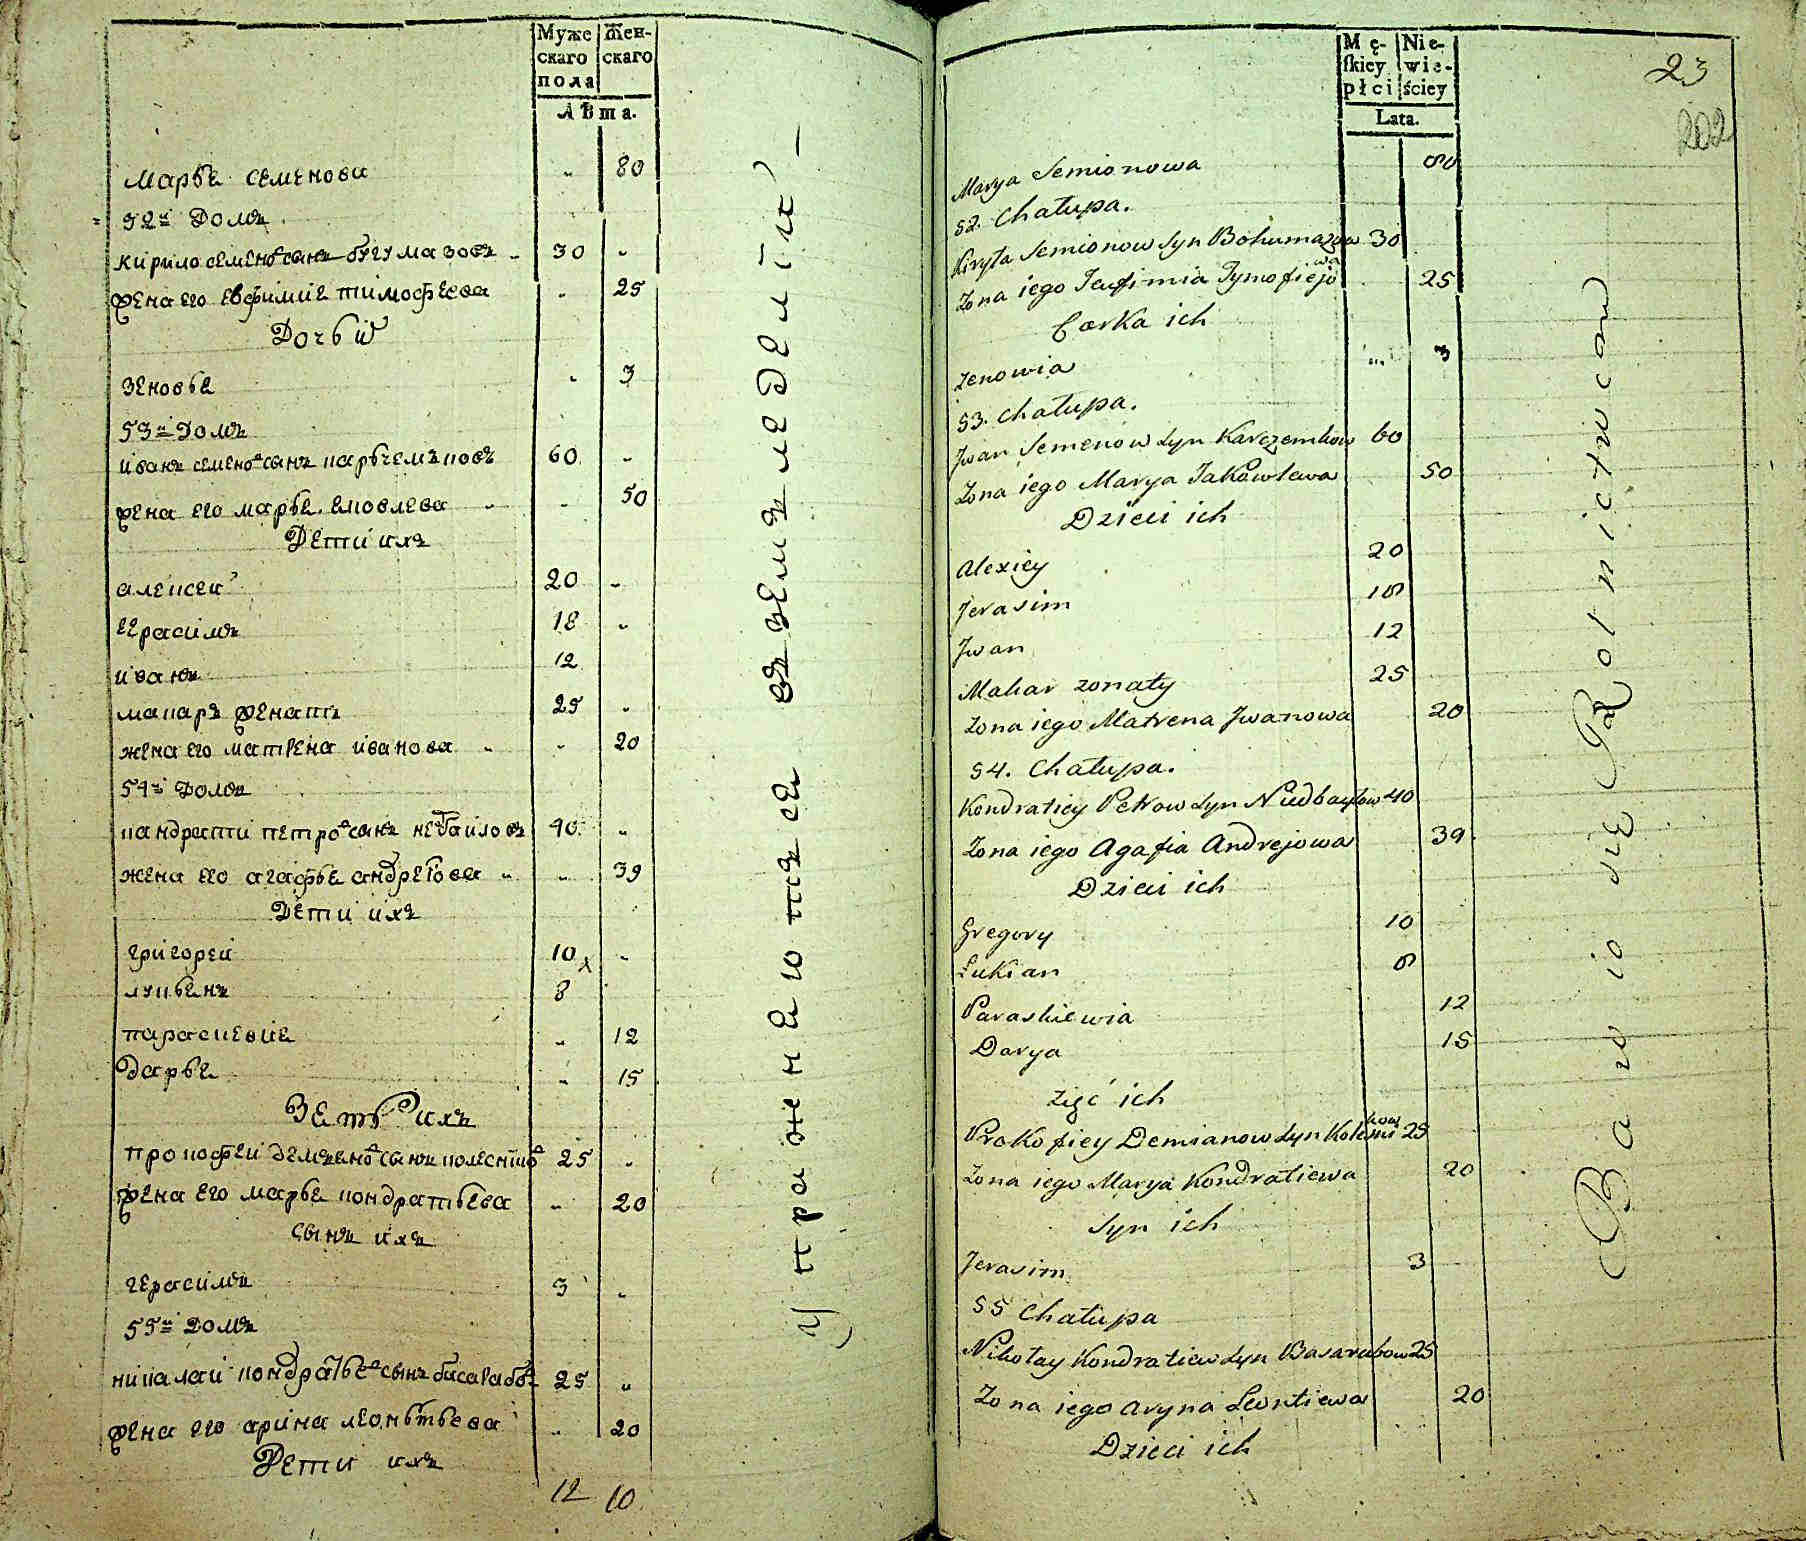 Муже Жен-
скаго скаго
пола
Лѣта.
марья семенова " 80
52й Домъ
кирило семеновъ сынъ бугумазовъ 30 "
жена его евфимия тимофеева " 25
Дочь их
зеновья " 3
53й Домъ
иванъ семеновъ сынъ карьчемъковъ 60 "
жена его марья яковлева " 50
Дети ихъ
алексей 20 "
герасимъ 18 "
иванъ 12
макаръ женатъ 25 "
жена его матрена иванова " 20
54й Домъ
кандрати петровъ сынъ недбайловъ 40 "
жена его агафья андреева " 39
Дети ихъ
григорей 10 "
лукьянъ 8
параскевия " 12
дарья " 15
Зеть ихъ
прокофей демяновъ сынъ колесниковъ 25 "
жена его марья кондратьева " 20
сынъ ихъ
герасимъ 3 "
55й домъ
никалай кондратьевъ сынъ басарабовъ 25 "
жена его арина леонътьева " 20
Дети ихъ
12 10
упражняютъся въ земъледелии
Mę- Nie-
skiey wie-
płci ściey
Lata.
23
202
Marya Semionowa 80
52. Chałupa.
Kiryła Semionow Syn Bohumazow 30
Żona iego Jeufimia Tymofiejowa 25
Corka ich
Zenowia " 3
53. Chałupa.
Jwan Semenow Syn Karczemkow 60
Żona iego Marya Jakowlewa 50
Dzieci ich
Alexiey 20
Jerasim 18
Jwan 12
Makar zonaty 25
Żona iego Matrena Jwanowa 20
54. Chałupa.
Kondratiey Petrow Syn Niedbayłow 40
Żona iego Agafia Andrejowa 39
Dzieci ich
Gregory 10
Łukian 8
Paraskiewia 12
Darya 15
Zięć ich
Prokofiey Demianow Syn Kolesnikow 25
Żona iego Marya Kondratiewa 20
Syn ich
Jerasim 3
55 Chałupa
Nikołay Kondratiew Syn Basarabow 25
Żona iego Aryna Leontiewa 20
Dzieci ich
Bawio się Rolnictwem